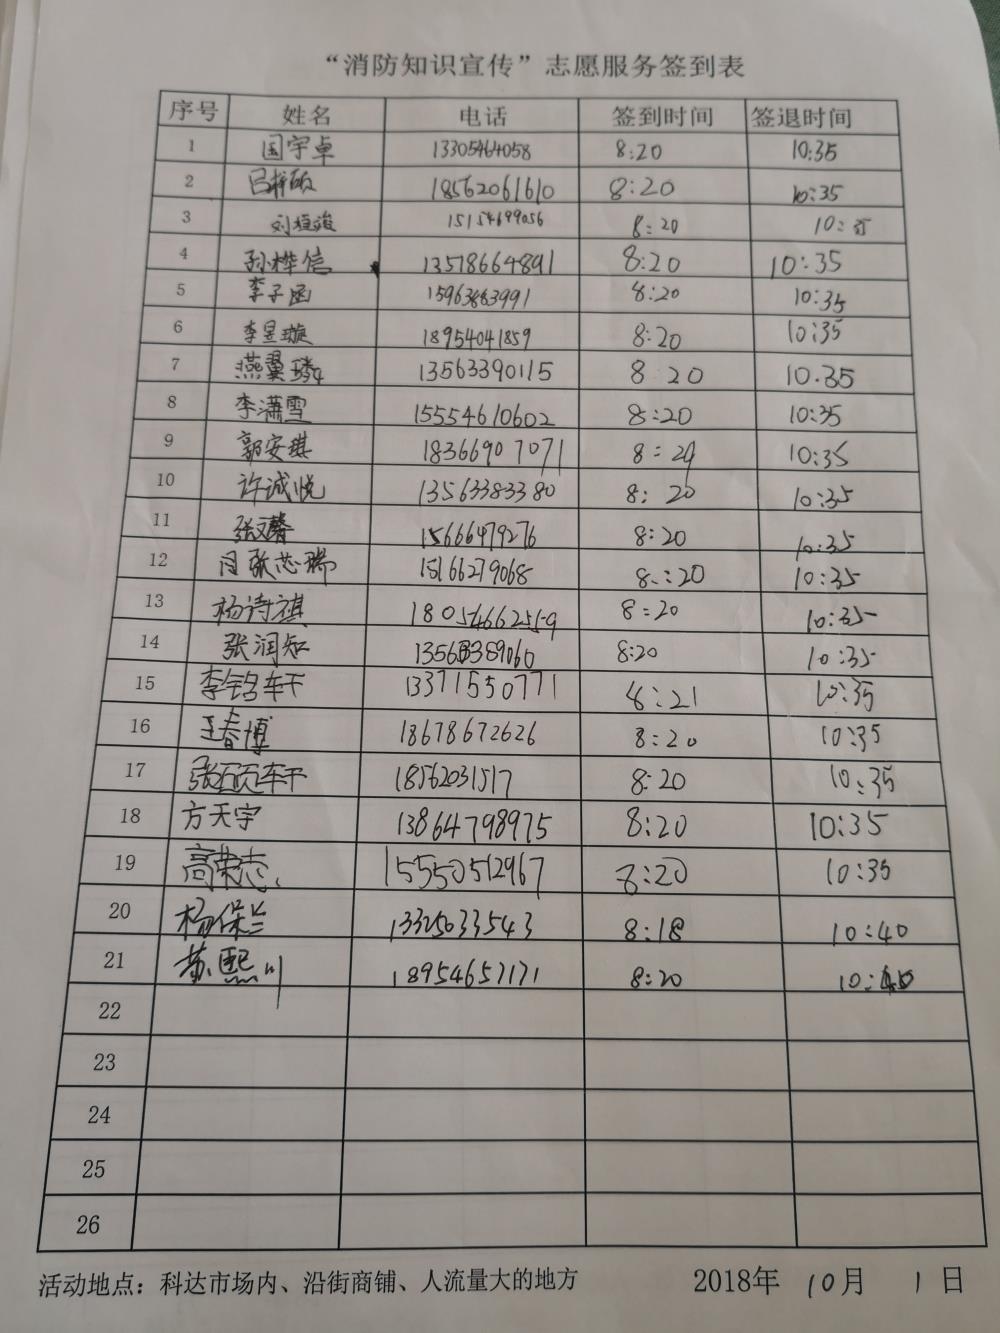 “消防知识宣传”志愿服务签到表
序号 姓名 电话 签到时间 签退时间
1 国宇卓 13305464058 8:20 10:35
2 18562061610 8:20 10:35
3 15154699056 8:20 10:35
4 孙桦信 13518664891 8:20 10:35
5 李子函 15963883991 8:20 10:35
6 李昱璇 18954041859 8:20 10:35
7 燕翼璘 13563390115 8:20 10.35
8 李潇雪 15554610602 8:20 10:35
9 郭安琪 18366907071 8:20 10:35
10 许诚悦 13563383380 8:20 10:35
11 15666479276 8:20 10:35
12 张芯瑞 15166279068 8:20 10:35
13 杨诗祺 18054666259 8:20 10:35
14 张润知 8:20 10:35
15 李铭轩 13371550771 8:21 10:35
16 王春博 18678672626 8:20 10:35
17 张硕轩 18562031517 8:20 10:35
18 方天宇 13864798975 8:20 10:35
19 高荣志 15550512967 8:20 10:35
20 杨保兰 13325033543 8:18 10:40
21 苏熙川 18954657171 8:20 10:40
22
23
24
25
26
活动地点：科达市场内、沿街商铺、人流量大的地方 2018年 10月 1日